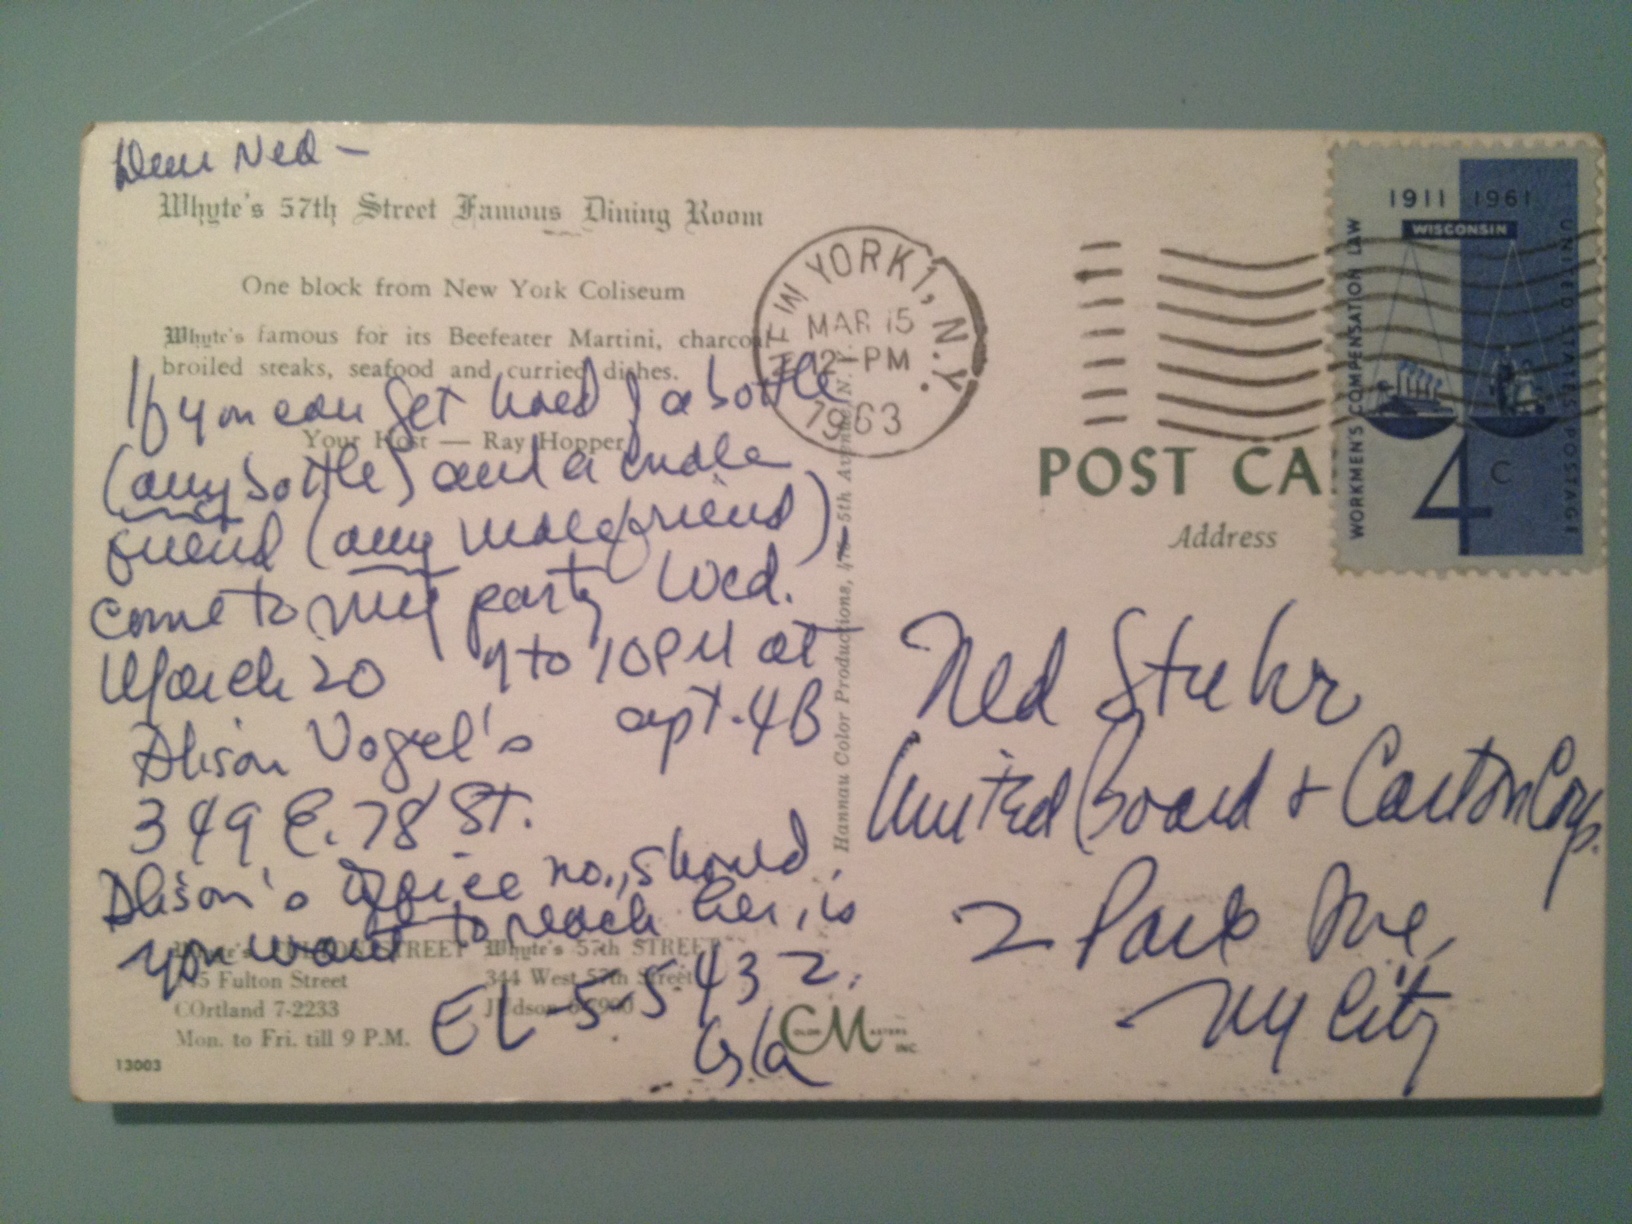 Dear Ned —
Whyte's 57th Street Famous Dining Room
One block from New York Coliseum
Whyte's famous for its Beefeater Martini, charcoal
broiled steaks, seafood and curried dishes.
Your Host — Ray Hopper
If you can get hold of a bottle
(any bottle) and a male
friend (any male friend)
come to my party Wed.
March 20 7 to 10 PM at
Alison Vogel's apt. 4B
349 E. 78 St.
Alison's office no., should
you want to reach her, is
EL-5-5432.
Whyte's FULTON STREET
145 Fulton Street
COrtland 7-2233
Mon. to Fri. till 9 P.M.
Whyte's 57th STREET
344 West 57th Street
13003
COLOR MASTERS INC.
Hannau Color Productions, 475 5th Avenue, N. Y.
NEW YORK 1, N.Y.
MAR 15
12 - PM
1963
1911 1961
WISCONSIN
WORKMEN'S COMPENSATION LAW
UNITED STATES POSTAGE
4 C
POST CA
Address
Ned Stuhr
United Board & Carton Corp.
2 Park Ave,
NY City